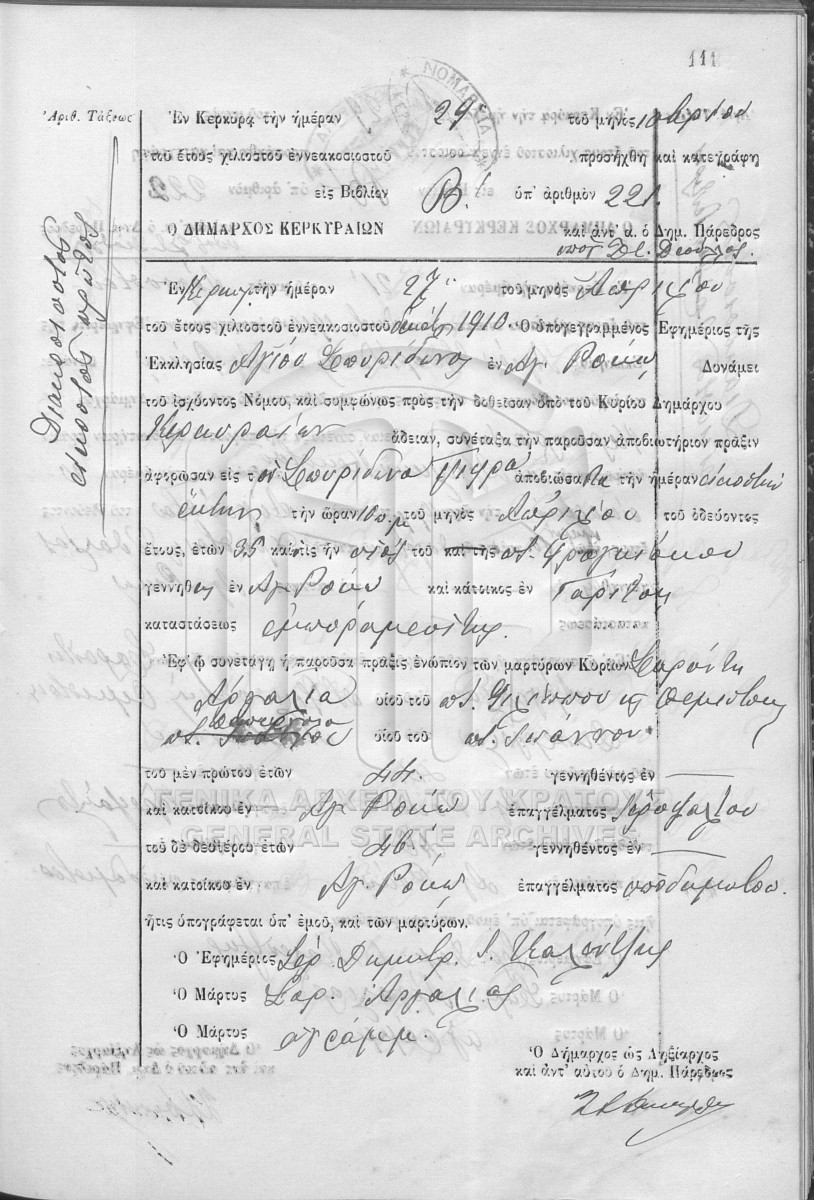 111
Ἀριθ. Τάξεως
Διακοσιοστὸς
εἰκοστὸς πρῶτος
Ἐν Κερκύρᾳ τὴν ἡμέραν 29 τοῦ μηνὸς 10βρίου
τοῦ ἔτους χιλιοστοῦ ἐννεακοσιοστοῦ προσήχθη καὶ κατεγράφη
εἰς Βιβλίον Β. ὑπ' ἀριθμὸν 221.
Ὁ ΔΗΜΑΡΧΟΣ ΚΕΡΚΥΡΑΙΩΝ καὶ ἀντ' α. ὁ Δημ. Πάρεδρος
Ἐν Κερκύρ τὴν ἡμέραν 27 τοῦ μηνὸς Ἀπριλίου
τοῦ ἔτους χιλιοστοῦ ἐννεακοσιοστοῦ δεκάτου 1910. Ὁ ὑπογεγραμμένος Ἐφημέριος τῆς
Ἐκκλησίας Ἁγίου Σπυρίδωνος ἐν Ἁγ. Ρόκῳ Δυνάμει
τοῦ ἰσχύοντος Νόμου, καὶ συμφώνως πρὸς τὴν δοθεῖσαν ὑπὸ τοῦ Κυρίου Δημάρχου
Κερκυραίων ἄδειαν, συνέταξα τὴν παροῦσαν ἀποβιωτήριον πρᾶξιν
ἀφορῶσαν εἰς τὸν Σπυρίδωνα ἀποβιώσαντα τὴν ἡμέραν εἰκοστὴν
ἕκτην τὴν ὥραν 10 π.μ. τοῦ μηνὸς Ἀπριλίου τοῦ ὁδεύοντος
ἔτους, ἐτῶν 35 καὶ τὶς ἦν υἱὸς τοῦ καὶ τῆς ποτ. Φραγκίσκου
γεννηθεὶς ἐν Ἁγ. Ρόκῳ καὶ κάτοικος ἐν Γαρίτσῃ
καταστάσεως ἐμποραμεσίτης.
Ἐφ' ᾧ συνετάγη ἡ παροῦσα πρᾶξις ἐνώπιον τῶν μαρτύρων Κυρίων Σαράντη
Ἀργαλιᾶ υἱοῦ τοῦ ποτ. Φιλίππου καὶ
υἱοῦ τοῦ ποτ. Ἰωάννου
τοῦ μὲν πρώτου ἐτῶν 44. γεννηθέντος ἐν
καὶ κατοίκου ἐν Ἁγ. Ρόκῳ ἐπαγγέλματος
τοῦ δὲ δευτέρου ἐτῶν 46. γεννηθέντος ἐν
καὶ κατοίκου ἐν Ἁγ. Ρόκῳ ἐπαγγέλματος ὑποδηματοπ.
ἥτις ὑπογράφεται ὑπ' ἐμοῦ, καὶ τῶν μαρτύρων.
Ὁ Ἐφημέριος Ἱερ. Δημητρ. Ι.
Ὁ Μάρτυς Σαρ. Ἀργαλιᾶς
Ὁ Μάρτυς ἀγράμμ.
Ὁ Δήμαρχος ὡς Ληξίαρχος
καὶ ἀντ' αὐτοῦ ὁ Δημ. Πάρεδρος
ΓΕΝΙΚΑ ΑΡΧΕΙΑ ΤΟΥ ΚΡΑΤΟΥΣ
GENERAL STATE ARCHIVES